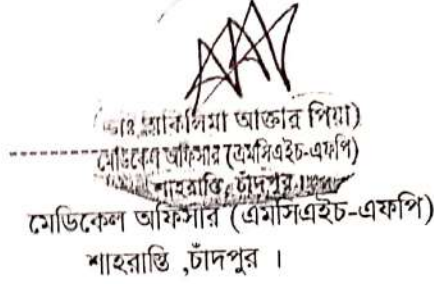 আক্তার পিয়া)
মেডিকেল অফিসার (এমসিএইচ-এফপি)
শাহরাস্তি, চাঁদপুর।
মেডিকেল অফিসার (এমসিএইচ-এফপি)
শাহরাস্তি ,চাঁদপুর ।